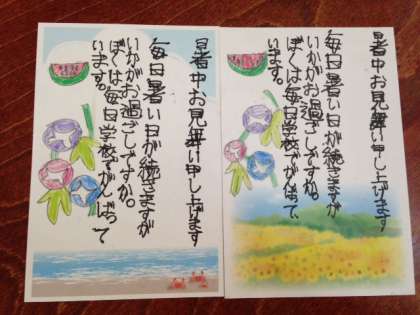 暑中お見舞い申し上げます
毎日暑い日が続きますが
いかがお過ごしですか。
ぼくは毎日学校でがんばって
います。
暑中お見舞い申し上げます
毎日暑い日が続きますが
いかがお過ごしですか。
ぼくは毎日学校でがんばって
います。